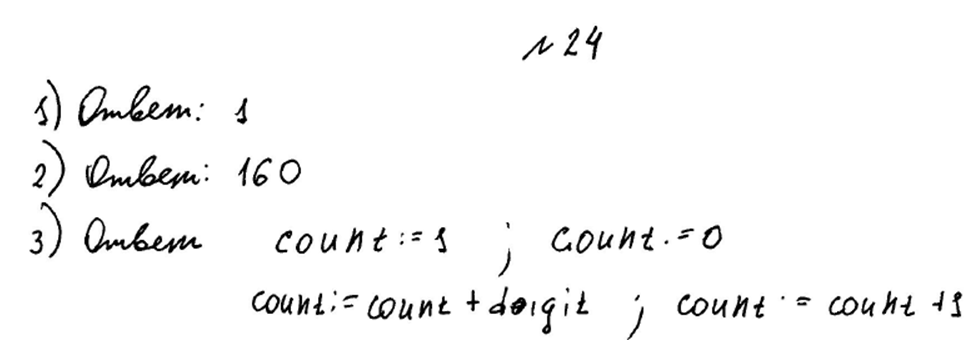 № 24
1) Ответ: 1
2) Ответ: 160
3) Ответ count:=1 ; count:=0
count:=count + doigit ; count := count +1